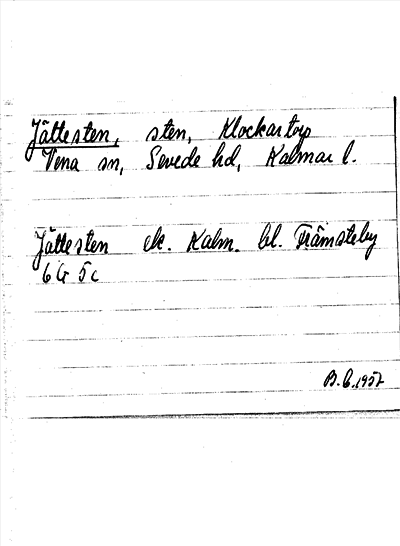 Jättesten, sten, Klockartorp
Vena sn, Sevede hd, Kalmar l.
Jättesten ek. Kalm. bl. Främsteby
6 G 5 c
B.C. 1957